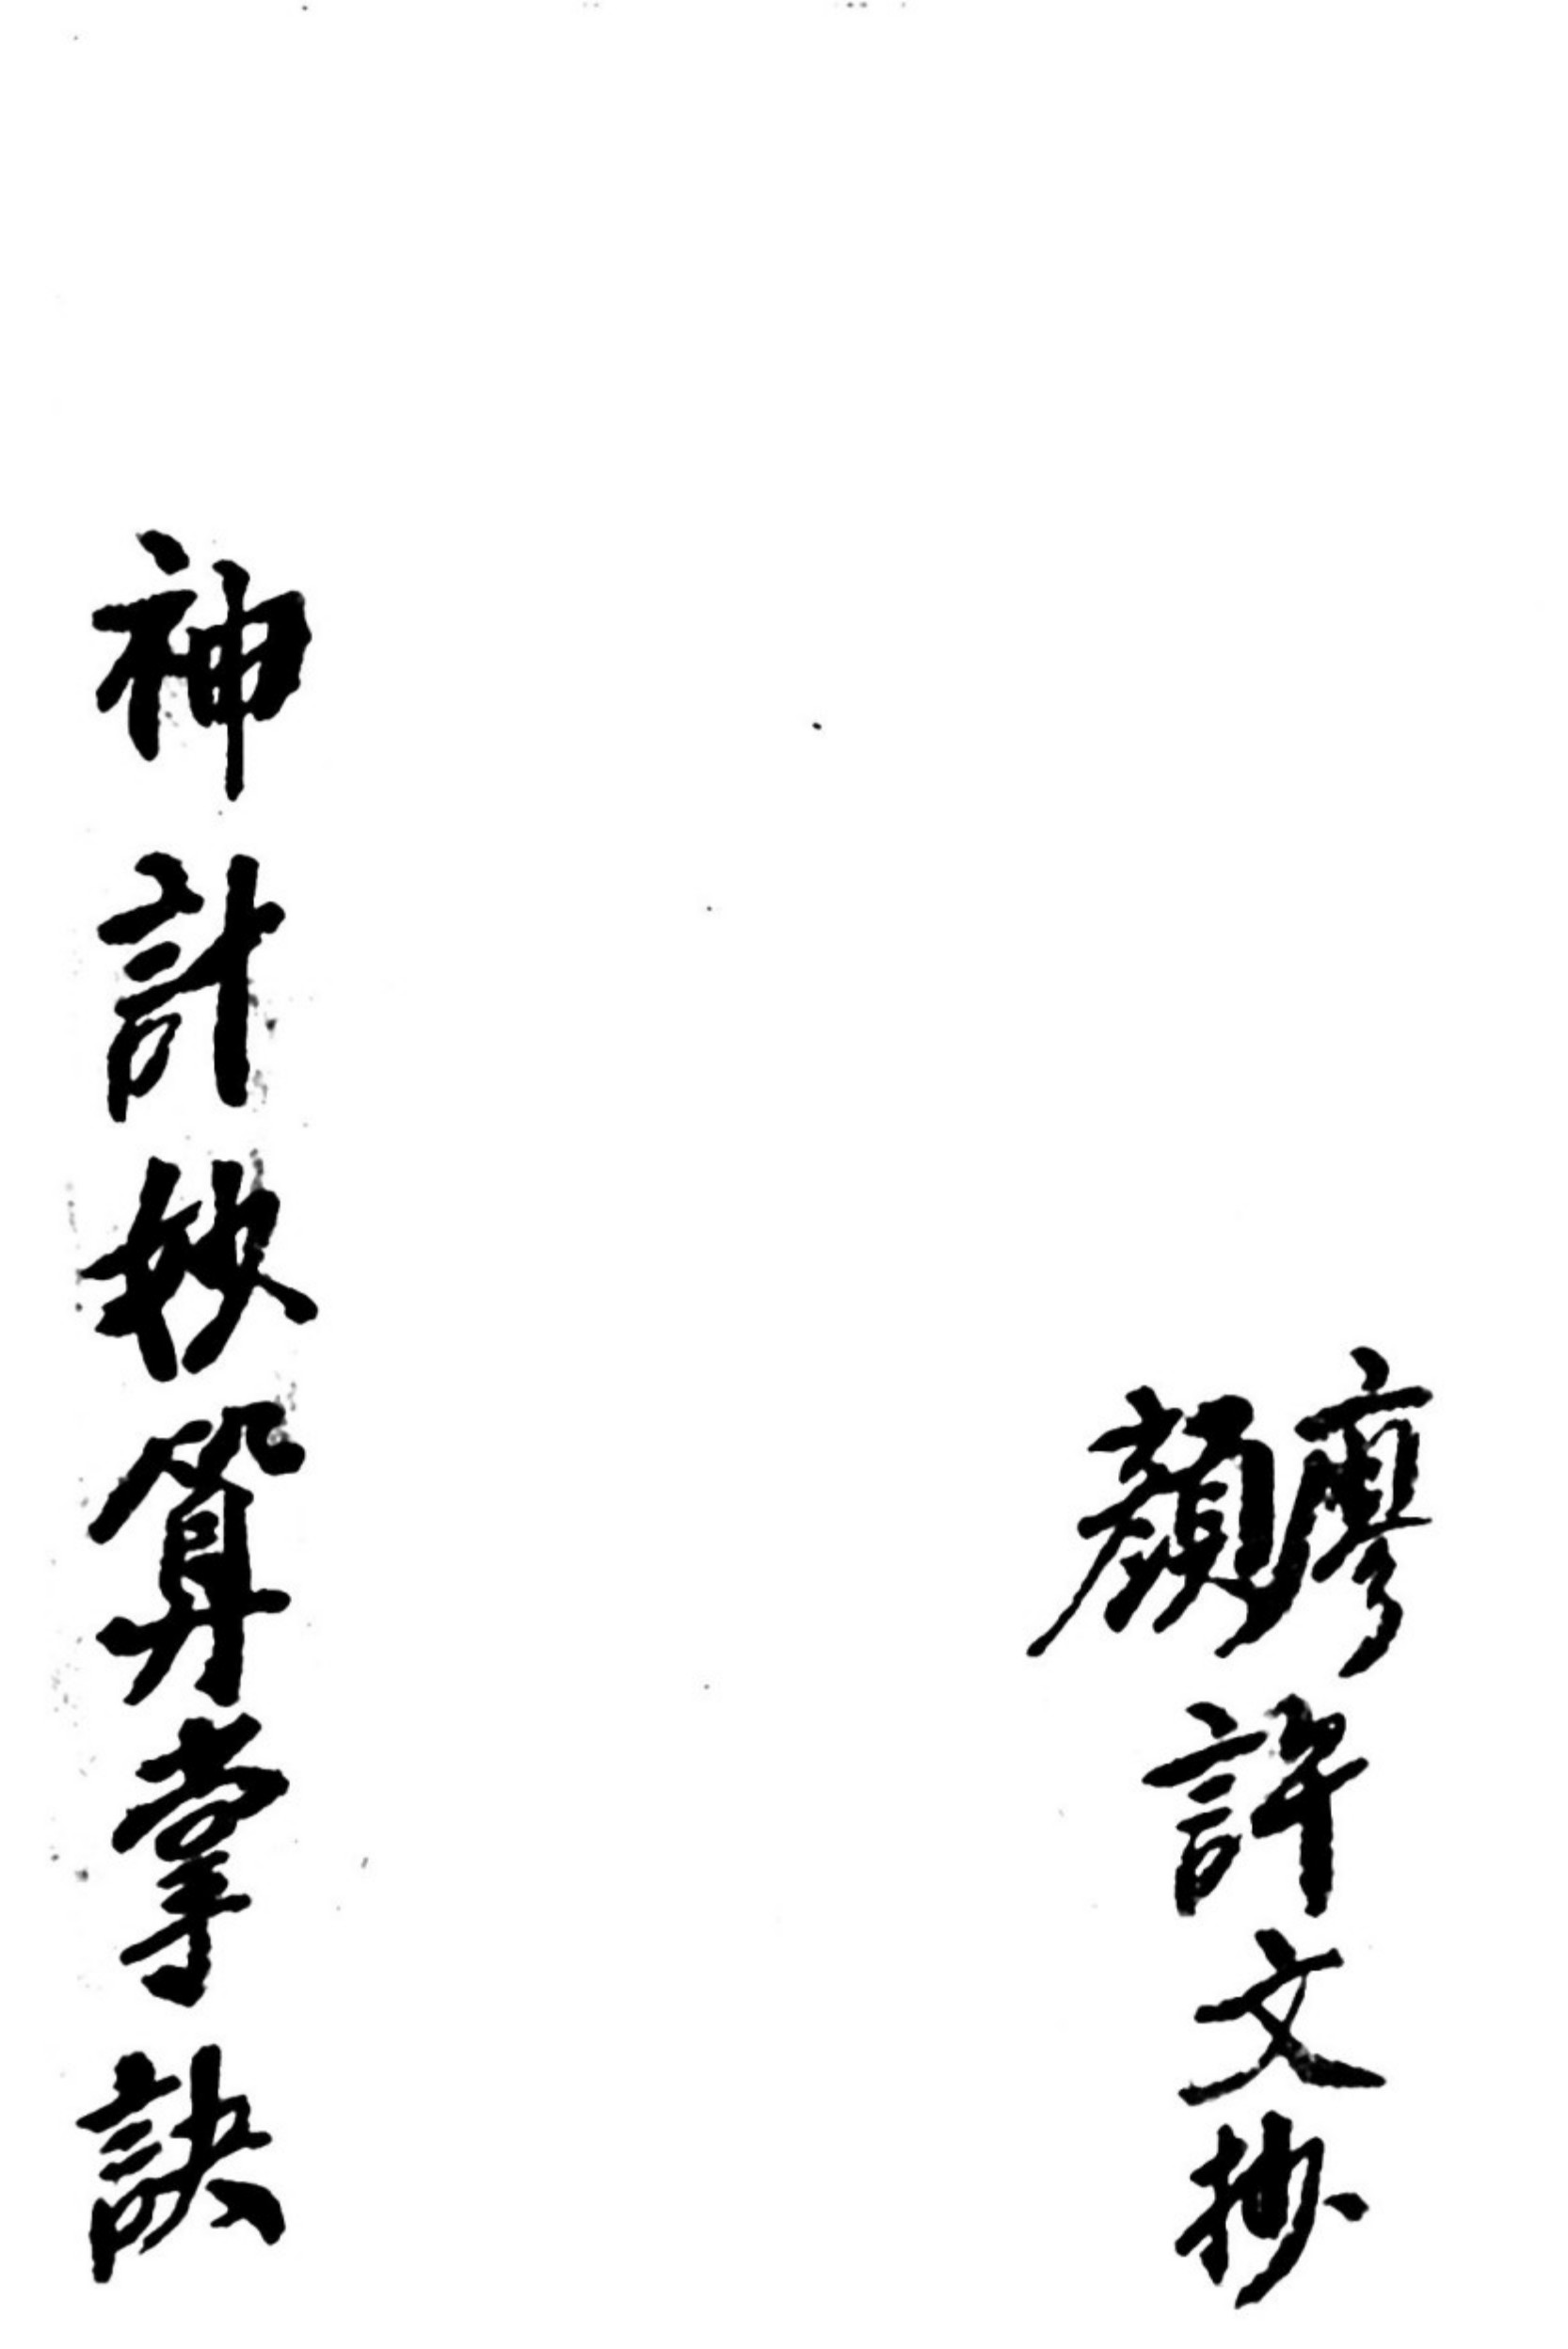 廖顏許文抄
神計算掌訣